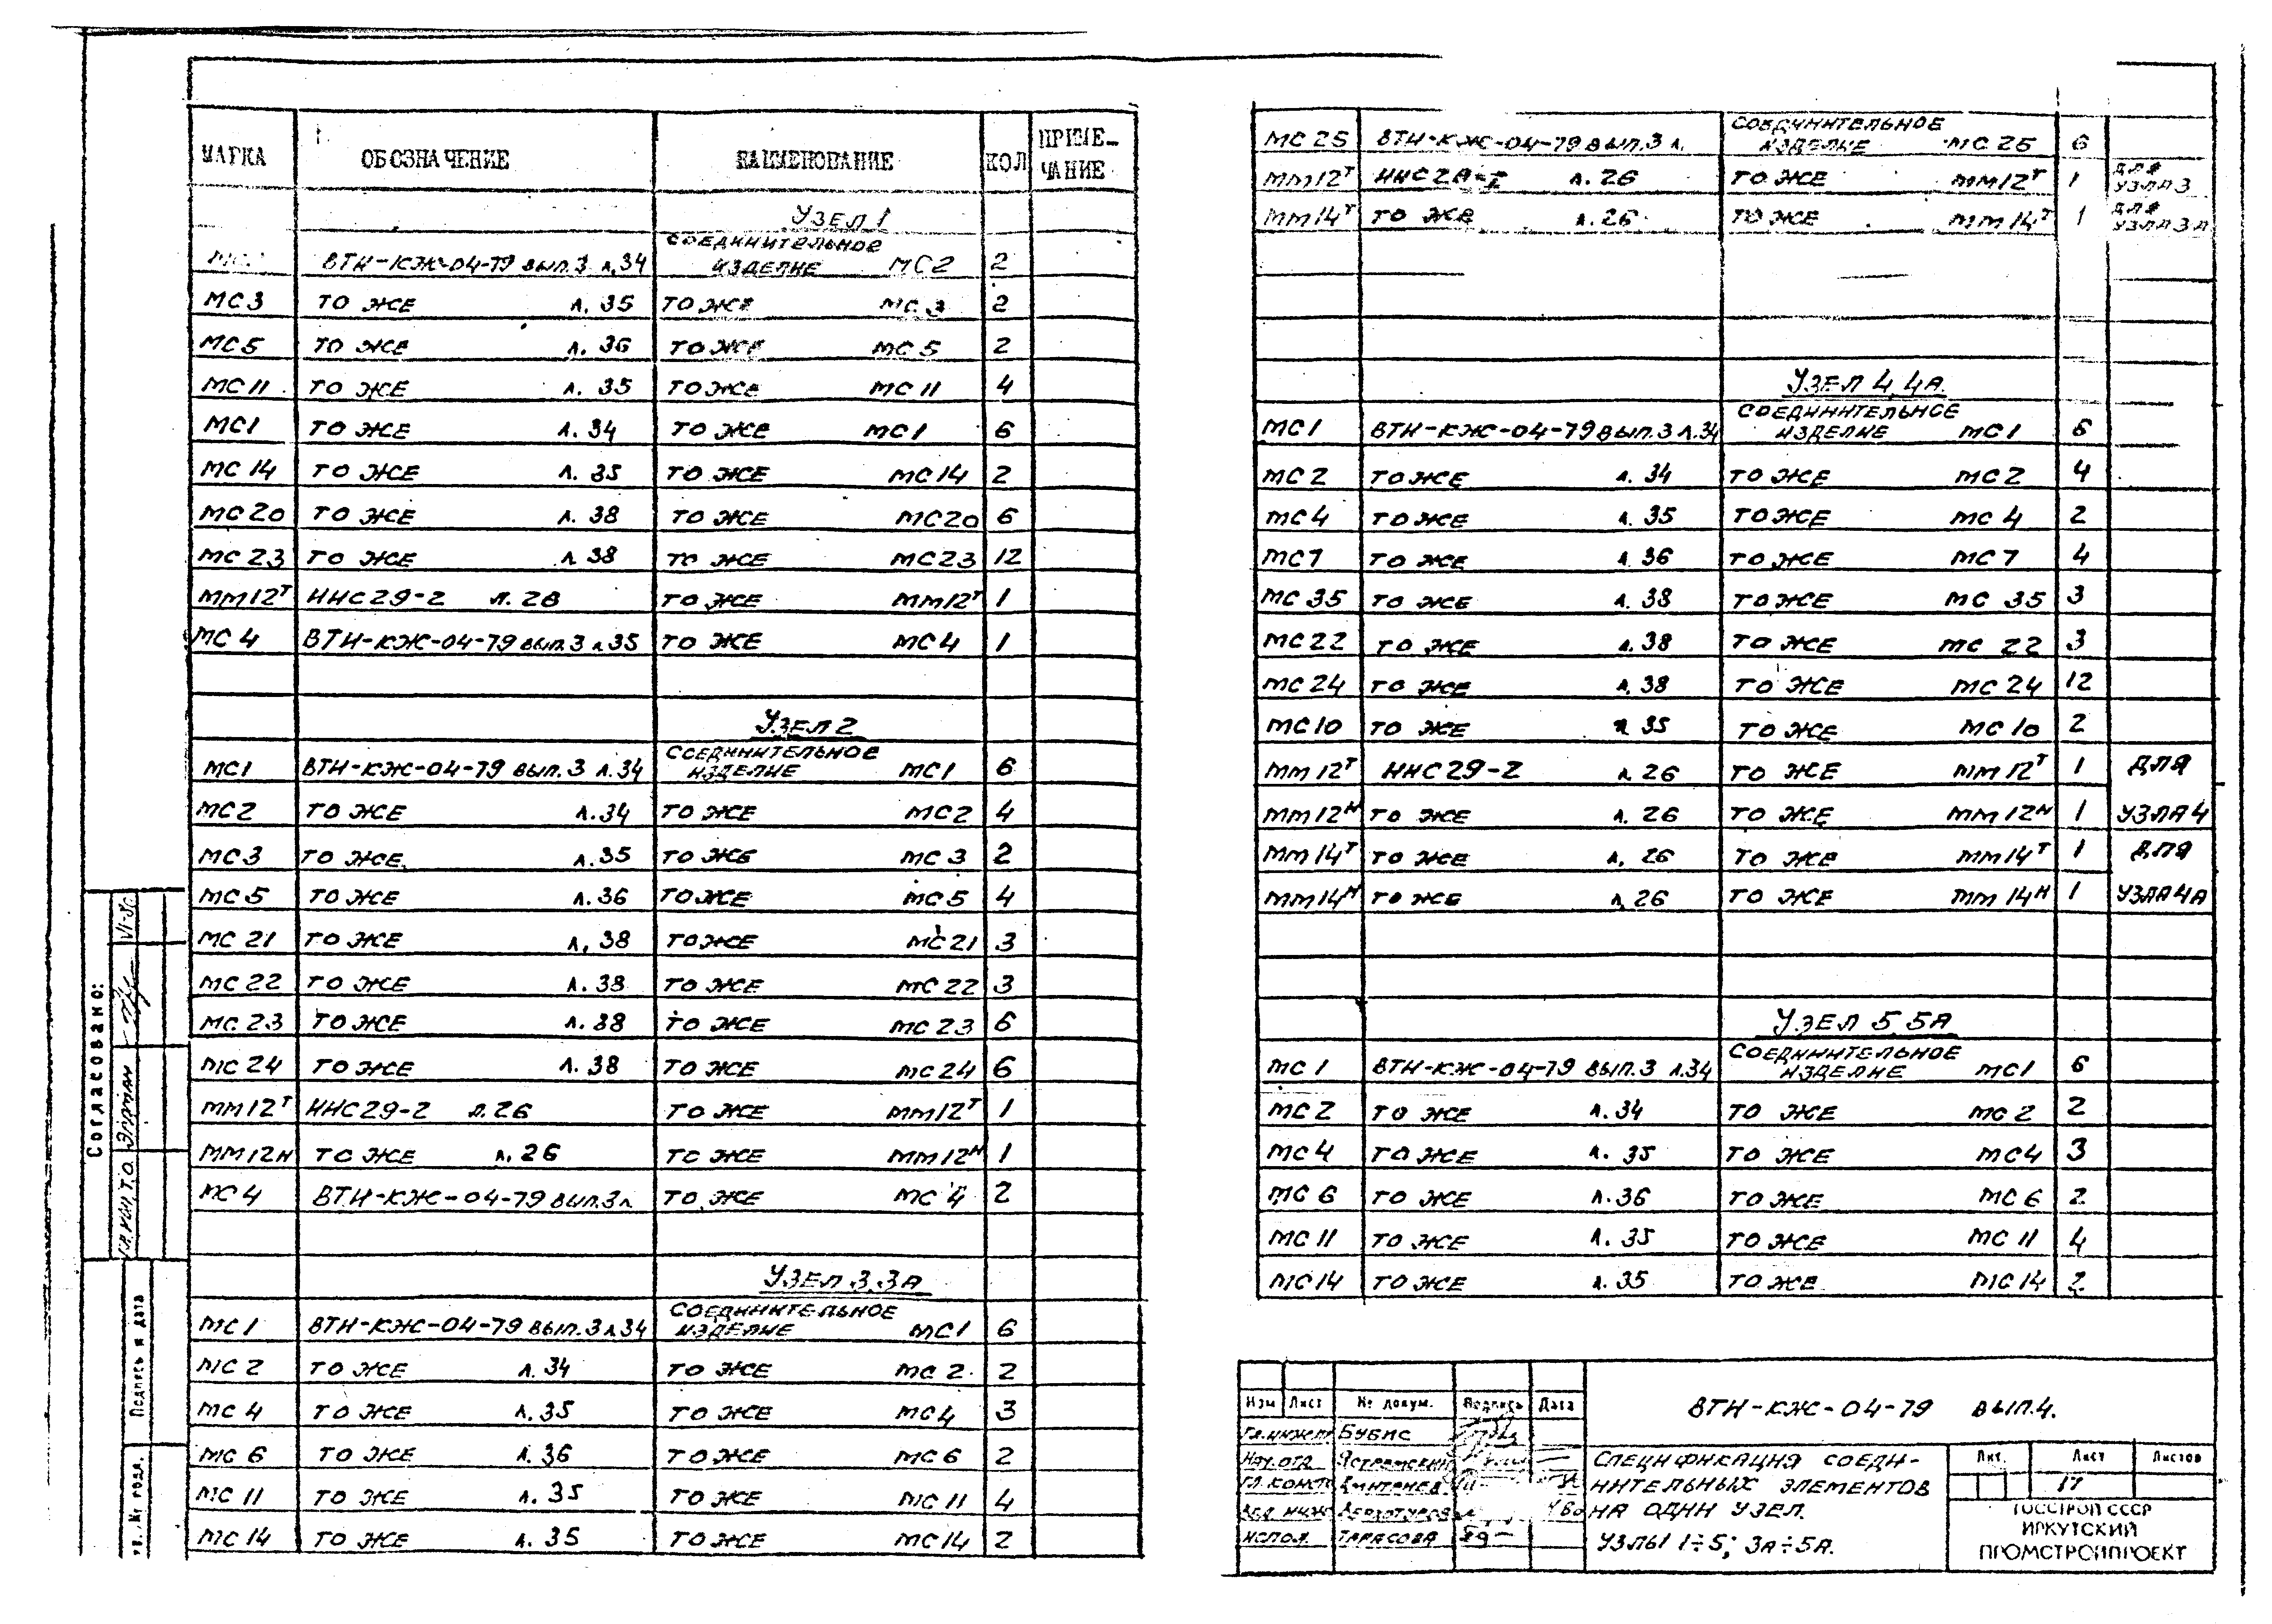 МАРКА ОБОЗНАЧЕНИЕ НАИМЕНОВАНИЕ КОЛ ПРИМЕ-
ЧАНИЕ
УЗЕЛ 1
СОЕДИНИТЕЛЬНОЕ
МС ВТИ-КЖ-04-79 ВЫП.3 Л.34 ИЗДЕЛИЕ МС2 2
МС3 ТО ЖЕ Л. 35 ТО ЖЕ МС 3 2
МС5 ТО ЖЕ Л. 36 ТО ЖЕ МС 5 2
МС11 ТО ЖЕ Л. 35 ТО ЖЕ МС 11 4
МС1 ТО ЖЕ Л. 34 ТО ЖЕ МС1 6
МС 14 ТО ЖЕ Л. 35 ТО ЖЕ МС14 2
МС20 ТО ЖЕ Л. 38 ТО ЖЕ МС20 6
МС 23 ТО ЖЕ Л 38 ТО ЖЕ МС23 12
ММ12Т ИИС29-2 Л. 26 ТО ЖЕ ММ12Т 1
МС 4 ВТИ-КЖ-04-79 ВЫП.3 Л 35 ТО ЖЕ МС 4 1
УЗЕЛ 2
СОЕДИНИТЕЛЬНОЕ
МС1 ВТИ-КЖ-04-79 ВЫП.3 Л.34 ИЗДЕЛИЕ МС1 6
МС2 ТО ЖЕ Л.34 ТО ЖЕ МС2 4
МС3 ТО ЖЕ Л.35 ТО ЖЕ МС 3 2
МС 5 ТО ЖЕ Л.36 ТО ЖЕ МС5 4
МС 21 ТО ЖЕ Л, 38 ТО ЖЕ МС21 3
МС 22 ТО ЖЕ Л.38 ТО ЖЕ МС22 3
МС 23 ТО ЖЕ Л.38 ТО ЖЕ МС 23 6
МС 24 ТО ЖЕ Л.38 ТО ЖЕ МС24 6
ММ12Т ИИС29-2 Л.26 ТО ЖЕ ММ12Т 1
ММ12Н ТО ЖЕ Л.26 ТО ЖЕ ММ12Н 1
МС 4 ВТИ-КЖ-04-79 ВЫП.3 Л ТО ЖЕ МС 4 2
УЗЕЛ 3.3А
СОЕДИНИТЕЛЬНОЕ
МС1 ВТИ-КЖ-04-79 ВЫП.3 Л34 ИЗДЕЛИЕ МС1 6
МС 2 ТО ЖЕ Л.34 ТО ЖЕ МС 2 2
МС 4 ТО ЖЕ Л.35 ТО ЖЕ МС4 3
МС 6 ТО ЖЕ Л.36 ТО ЖЕ МС 6 2
МС 11 ТО ЖЕ Л.35 ТО ЖЕ МС 11 4
МС 14 ТО ЖЕ Л.35 ТО ЖЕ МС 14 2
СОЕДИНИТЕЛЬНОЕ
МС 25 ВТИ-КЖ-04-79 ВЫП.3 Л. ИЗДЕЛИЕ МС 25 6
ММ12Т Л. 26 ТО ЖЕ ММ12Т 1 ДЛЯ
УЗЛА 3
ММ14Т ТО ЖЕ Л.26 ТО ЖЕ ММ14Т 1 ДЛЯ
УЗЛА 3А
УЗЕЛ 4,4А
СОЕДИНИТЕЛЬНОЕ
МС1 ВТИ-КЖ-04-79 ВЫП.3 Л.34 ИЗДЕЛИЕ МС1 6
МС 2 ТО ЖЕ Л. 34 ТО ЖЕ МС2 4
МС4 ТО ЖЕ Л. 35 ТО ЖЕ МС 4 2
МС7 ТО ЖЕ Л 36 ТО ЖЕ МС 7 4
МС 35 ТО ЖЕ Л. 38 ТО ЖЕ МС 35 3
МС22 ТО ЖЕ Л.38 ТО ЖЕ МС 22 3
МС 24 ТО ЖЕ Л.38 ТО ЖЕ МС24 12
МС10 ТО ЖЕ Л 35 ТО ЖЕ МС10 2
ММ12Т ИИС29-2 Л 26 ТО ЖЕ ММ12Т 1 ДЛЯ
ММ12Н ТО ЖЕ Л. 26 ТО ЖЕ ММ12Н 1 УЗЛА 4
ММ14Т ТО ЖЕ Л, 26 ТО ЖЕ ММ14Т 1 ДЛЯ
ММ14Н ТО ЖЕ Л, 26 ТО ЖЕ ММ 14Н 1 УЗЛА 4А
УЗЕЛ 5,5А
СОЕДИНИТЕЛЬНОЕ
МС 1 ВТИ-КЖ-04-79 ВЫП.3 Л.34 ИЗДЕЛИЕ МС1 6
МС 2 ТО ЖЕ Л.34 ТО ЖЕ МС 2 2
МС 4 ТО ЖЕ Л. 35 ТО ЖЕ МС4 3
МС 6 ТО ЖЕ Л.36 ТО ЖЕ МС 6 2
МС 11 ТО ЖЕ Л. 35 ТО ЖЕ МС 11 4
МС14 ТО ЖЕ Л.35 ТО ЖЕ МС 14 2
Согласовано:
ГЛ. КОН. Т.О.
Подпись и дата
Изм Лист № докум. Подпись Дата
БУБИС
НАЧ.ОТД
ГЛ.КОНСТ
ИСПОЛ. ТАРАСОВА
ВТИ-КЖ-04-79 ВЫП.4.
СПЕЦИФИКАЦИЯ СОЕДИ-
НИТЕЛЬНЫХ ЭЛЕМЕНТОВ
НА ОДИН УЗЕЛ.
УЗЛЫ 1÷5; 3А÷5А.
Лит. Лист Листов
17
ГОССТРОЙ СССР
ИРКУТСКИЙ
ПРОМСТРОЙПРОЕКТ